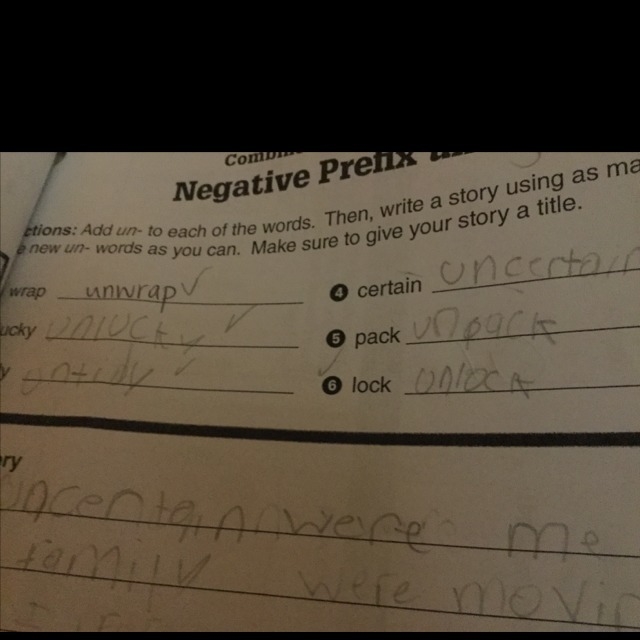 Negative Prefix
ctions: Add un- to each of the words. Then, write a story using as ma
e new un- words as you can. Make sure to give your story a title.
wrap unwrap ✓ 4 certain uncertain
ucky unlucky ✓ 5 pack unpack
y untidy ✓ 6 lock unlock
ry
uncertain were me
family were movin